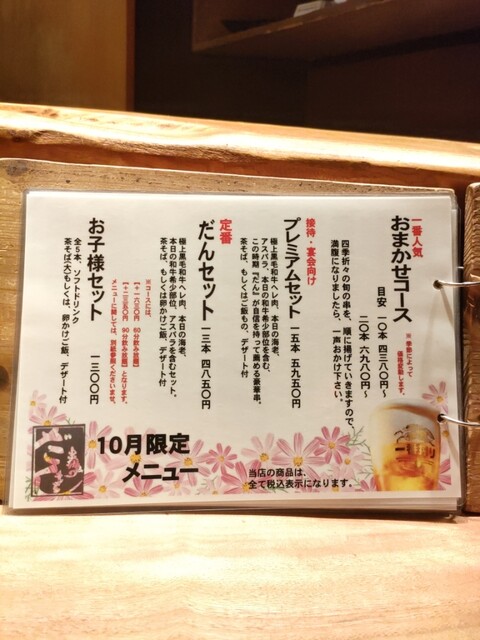 一番人気
おまかせコース
※季節によって
価格変動します。
目安 一〇本 四三八〇円～
二〇本 六九八〇円～
四季折々の旬の串を、一順に揚げていきますので、
満腹になりましたら、一声おかけ下さい。
接待・宴会向け
プレミアムセット 一五本 五九五〇円
極上黒毛和牛ヘレ肉、本日の海老、
アスパラ、本日の和牛希少部位を含む、
この時期『だん』が自信を持って薦める豪華串。
茶そば、もしくはご飯もの、デザート付
定番
だんセット 一三本 四八五〇円
極上黒毛和牛ヘレ肉、本日の海老、
本日の和牛希少部位、アスパラを含むセット。
茶そば、もしくは卵かけご飯、デザート付
※コースには、
【＋一六五〇円 60分飲み放題】
【＋二二五〇円 90分飲み放題】となります。
メニューに関しては、別紙参照くださいませ。
お子様セット 一三〇〇円
全5本、ソフトドリンク
茶そば(大)もしくは、卵かけご飯、デザート付
10月限定
メニュー
当店の商品は、
全て税込表示になります。
一番搾り